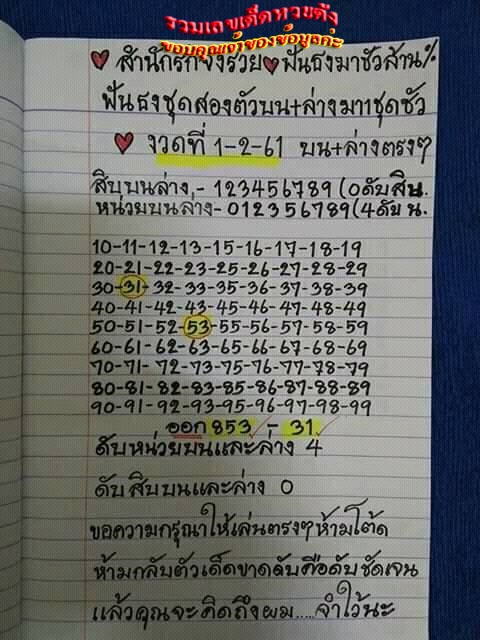 รวมเลขเด็ดหวยดัง
ขอบคุณเจ้าของข้อมูลค่ะ
สำนักรักจังรวย ฟันธงมาชัวล้าน%
ฟันธงชุดสองตัวบน+ล่างมาทุกชุดชัว
งวดที่ 1-2-61 บน+ล่างตรงๆ
สิบบนล่าง,- 123456789 (0ดับสิบ.
หน่วยบนล่าง-012356789(4ดับ น.
10-11-12-13-15-16-17-18-19
20-21-22-23-25-26-27-28-29
30-31-32-33-35-36-37-38-39
40-41-42-43-45-46-47-48-49
50-51-52-53-55-56-57-58-59
60-61-62-63-65-66-67-68-69
70-71-72-73-75-76-77-78-79
80-81-82-83-85-86-87-88-89
90-91-92-93-95-96-97-98-99
ออก 853 - 31
ดับหน่วยบนและล่าง 4
ดับสิบบนและล่าง 0
ขอความกรุณาให้เล่นตรงๆห้ามโต้ด
ห้ามกลับตัวเด็ดขาดดับคือดับชัดเจน
แล้วคุณจะคิดถึงผม....จำไว้นะ